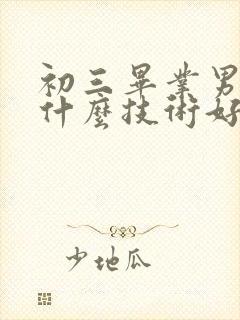 初三畢業男
什麼技術好
少地瓜